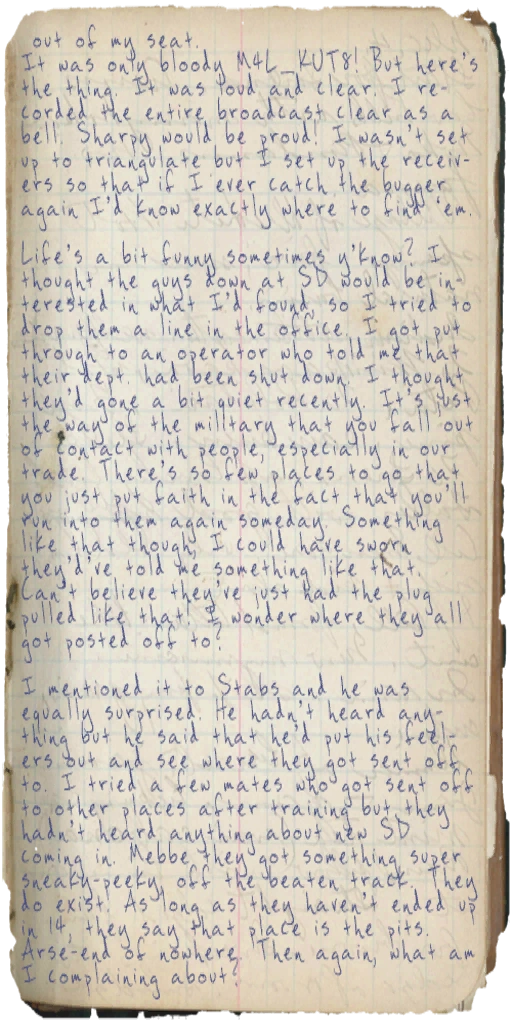 out of my seat.
It was only bloody M4L_KUT8! But here's
the thing. It was loud and clear. I re-
corded the entire broadcast clear as a
bell. Sharpy would be proud! I wasn't set
up to triangulate but I set up the receiv-
ers so that if I ever catch the bugger
again I'd know exactly where to find 'em.
Life's a bit funny sometimes y'know? I
thought the guys down at SD would be in-
terested in what I'd found, so I tried to
drop them a line in the office. I got put
through to an operator who told me that
their dept. had been shut down. I thought
they'd gone a bit quiet recently. It's just
the way of the military that you fall out
of contact with people, especially in our
trade. There's so few places to go that
you just put faith in the fact that you'll
run into them again someday. Something
like that though, I could have sworn
they'd've told me something like that.
Can't believe they've just had the plug
pulled like that! I wonder where they all
got posted off to?
I mentioned it to Stabs and he was
equally surprised. He hadn't heard any-
thing but he said that he'd put his feel-
ers out and see where they got sent off
to. I tried a few mates who got sent off
to other places after training but they
hadn't heard anything about new SD
coming in. Mebbe they got something super
sneaky-peeky, off the beaten track. They
do exist. As long as they haven't ended up
in 14, they say that place is the pits.
Arse-end of nowhere. Then again, what am
I complaining about?